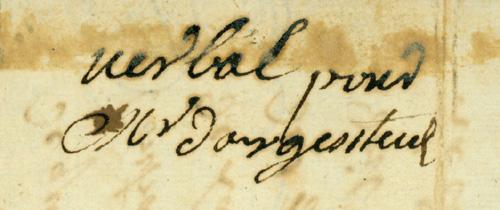 verbal pour
Mr dargenteuil